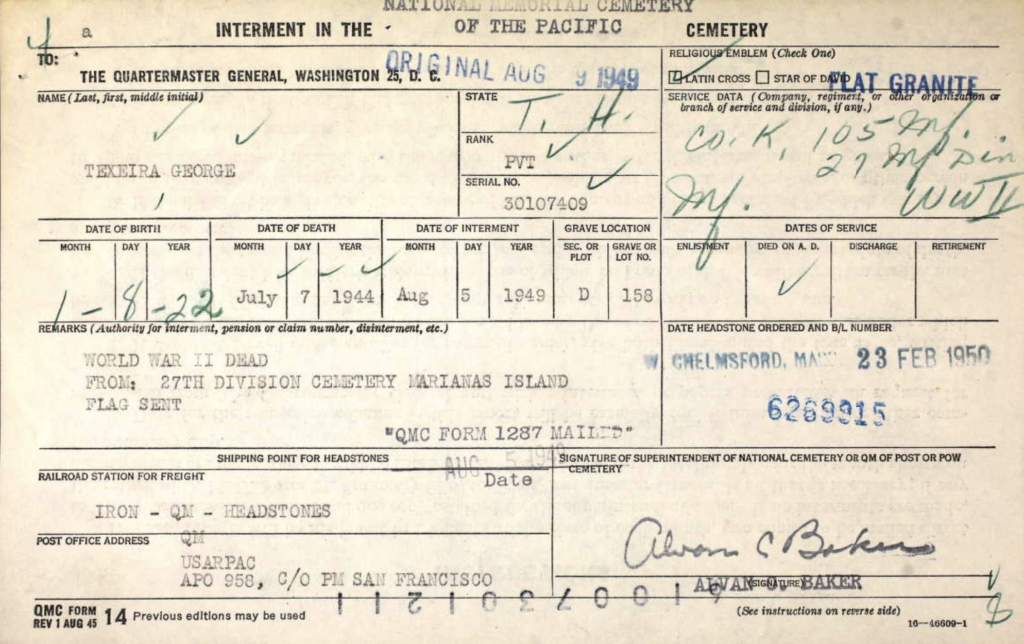 NATIONAL MEMORIAL CEMETERY
a INTERMENT IN THE OF THE PACIFIC CEMETERY
TO:
THE QUARTERMASTER GENERAL, WASHINGTON 25, D. C.
ORIGINAL AUG 9 1949
RELIGIOUS EMBLEM (Check One)
LATIN CROSS STAR OF DAVID
FLAT GRANITE
NAME (Last, first, middle initial)
TEXEIRA GEORGE
STATE
T. H.
RANK
PVT
SERIAL NO.
30107409
SERVICE DATA (Company, regiment, or other organization or branch of service and division, if any.)
CO. K, 105 Inf.
27 Inf Div
Inf. WW II
DATE OF BIRTH DATE OF DEATH DATE OF INTERMENT GRAVE LOCATION DATES OF SERVICE
MONTH DAY YEAR MONTH DAY YEAR MONTH DAY YEAR SEC. OR PLOT GRAVE OR LOT NO. ENLISTMENT DIED ON A. D. DISCHARGE RETIREMENT
1-8-22 July 7 1944 Aug 5 1949 D 158
REMARKS (Authority for interment, pension or claim number, disinterment, etc.)
WORLD WAR II DEAD
FROM: 27TH DIVISION CEMETERY MARIANAS ISLAND
FLAG SENT
"QMC FORM 1287 MAILED"
DATE HEADSTONE ORDERED AND B/L NUMBER
W. CHELMSFORD, MASS 23 FEB 1950
6289915
SHIPPING POINT FOR HEADSTONES
AUG 5 1949
Date
RAILROAD STATION FOR FREIGHT
IRON - QM - HEADSTONES
POST OFFICE ADDRESS
QM
USARPAC
APO 958, C/O PM SAN FRANCISCO
SIGNATURE OF SUPERINTENDENT OF NATIONAL CEMETERY OR QM OF POST OR POW CEMETERY
Alvan C Baker
ALVAN C. BAKER
(SIGNATURE)
QMC FORM 14 Previous editions may be used
REV 1 AUG 45
(See instructions on reverse side)
16—46609-1